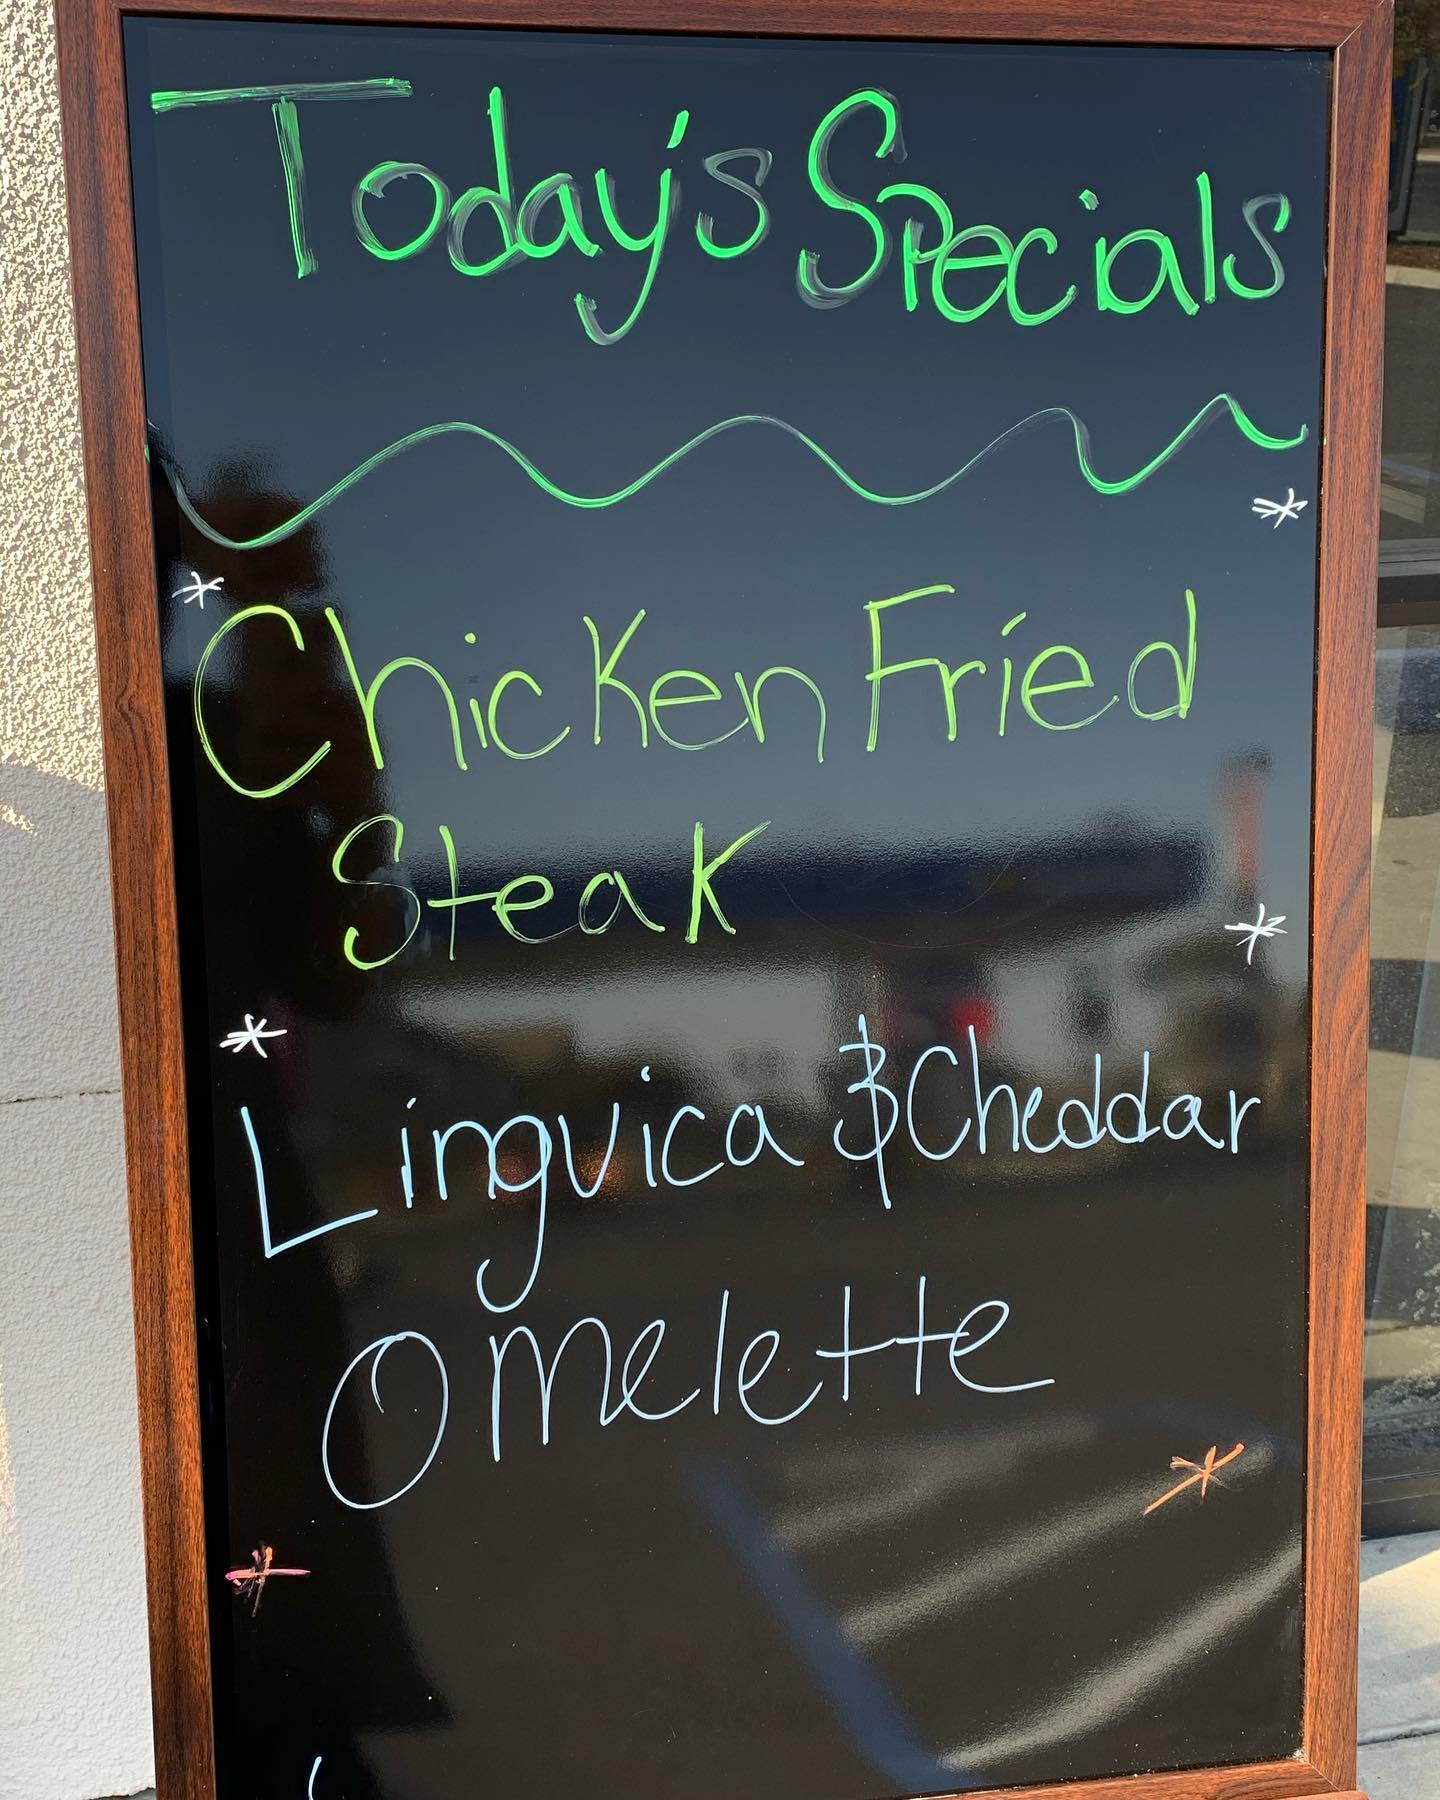 Today's Specials
Chicken Fried
Steak
Lingvica & Cheddar
Omelette